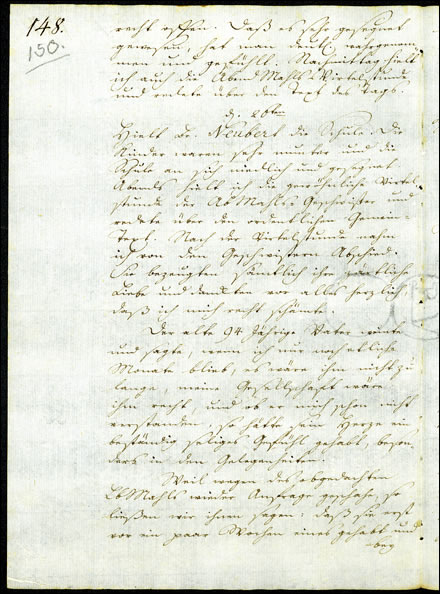 148.
150.
recht essen. Daß es sehr gesegnet
gewesen, hat man deutl. wahrgenom-
men und gefühlt. Nachmittag hielt
ich auch die Abend Mahls Viertelstunde
und redete über den Text des Tags.
d. 26ten
Hielt Br. Neubert die Schule. Die
Kinder waren sehr munter und die
Schule an sich niedlich und gesegnet.
Abends hielt ich die gewöhnliche Viertel-
stunde der Ab Mahls Geschwister und
redete über den ordentlichen Gemein-
Text. Nach der Viertelstunde nahm
ich von den Geschwistern Abschied.
Sie bezeugten sämtlich ihre
Liebe und dankten vor alles herzlich
daß ich mich recht schämte.
Der alte 94 Jährige Vater weinte
und sagte, wenn ich nur noch etliche
Monate blieb, es wäre ihm nicht zu
lange, meine Gesellschaft wäre
ihm recht, und ob er mich schon nicht
verstanden, so hätte sein Herze ein
beständig seliges Gefühl gehabt, beson-
ders in den Gelegenheiten.
Weil wegen des abgedachten
Ab Mahls wieder Anfrage geschahe, so
ließen wir ihnen sagen: daß sie erst
vor ein paar Wochen eines gehabt und
bey